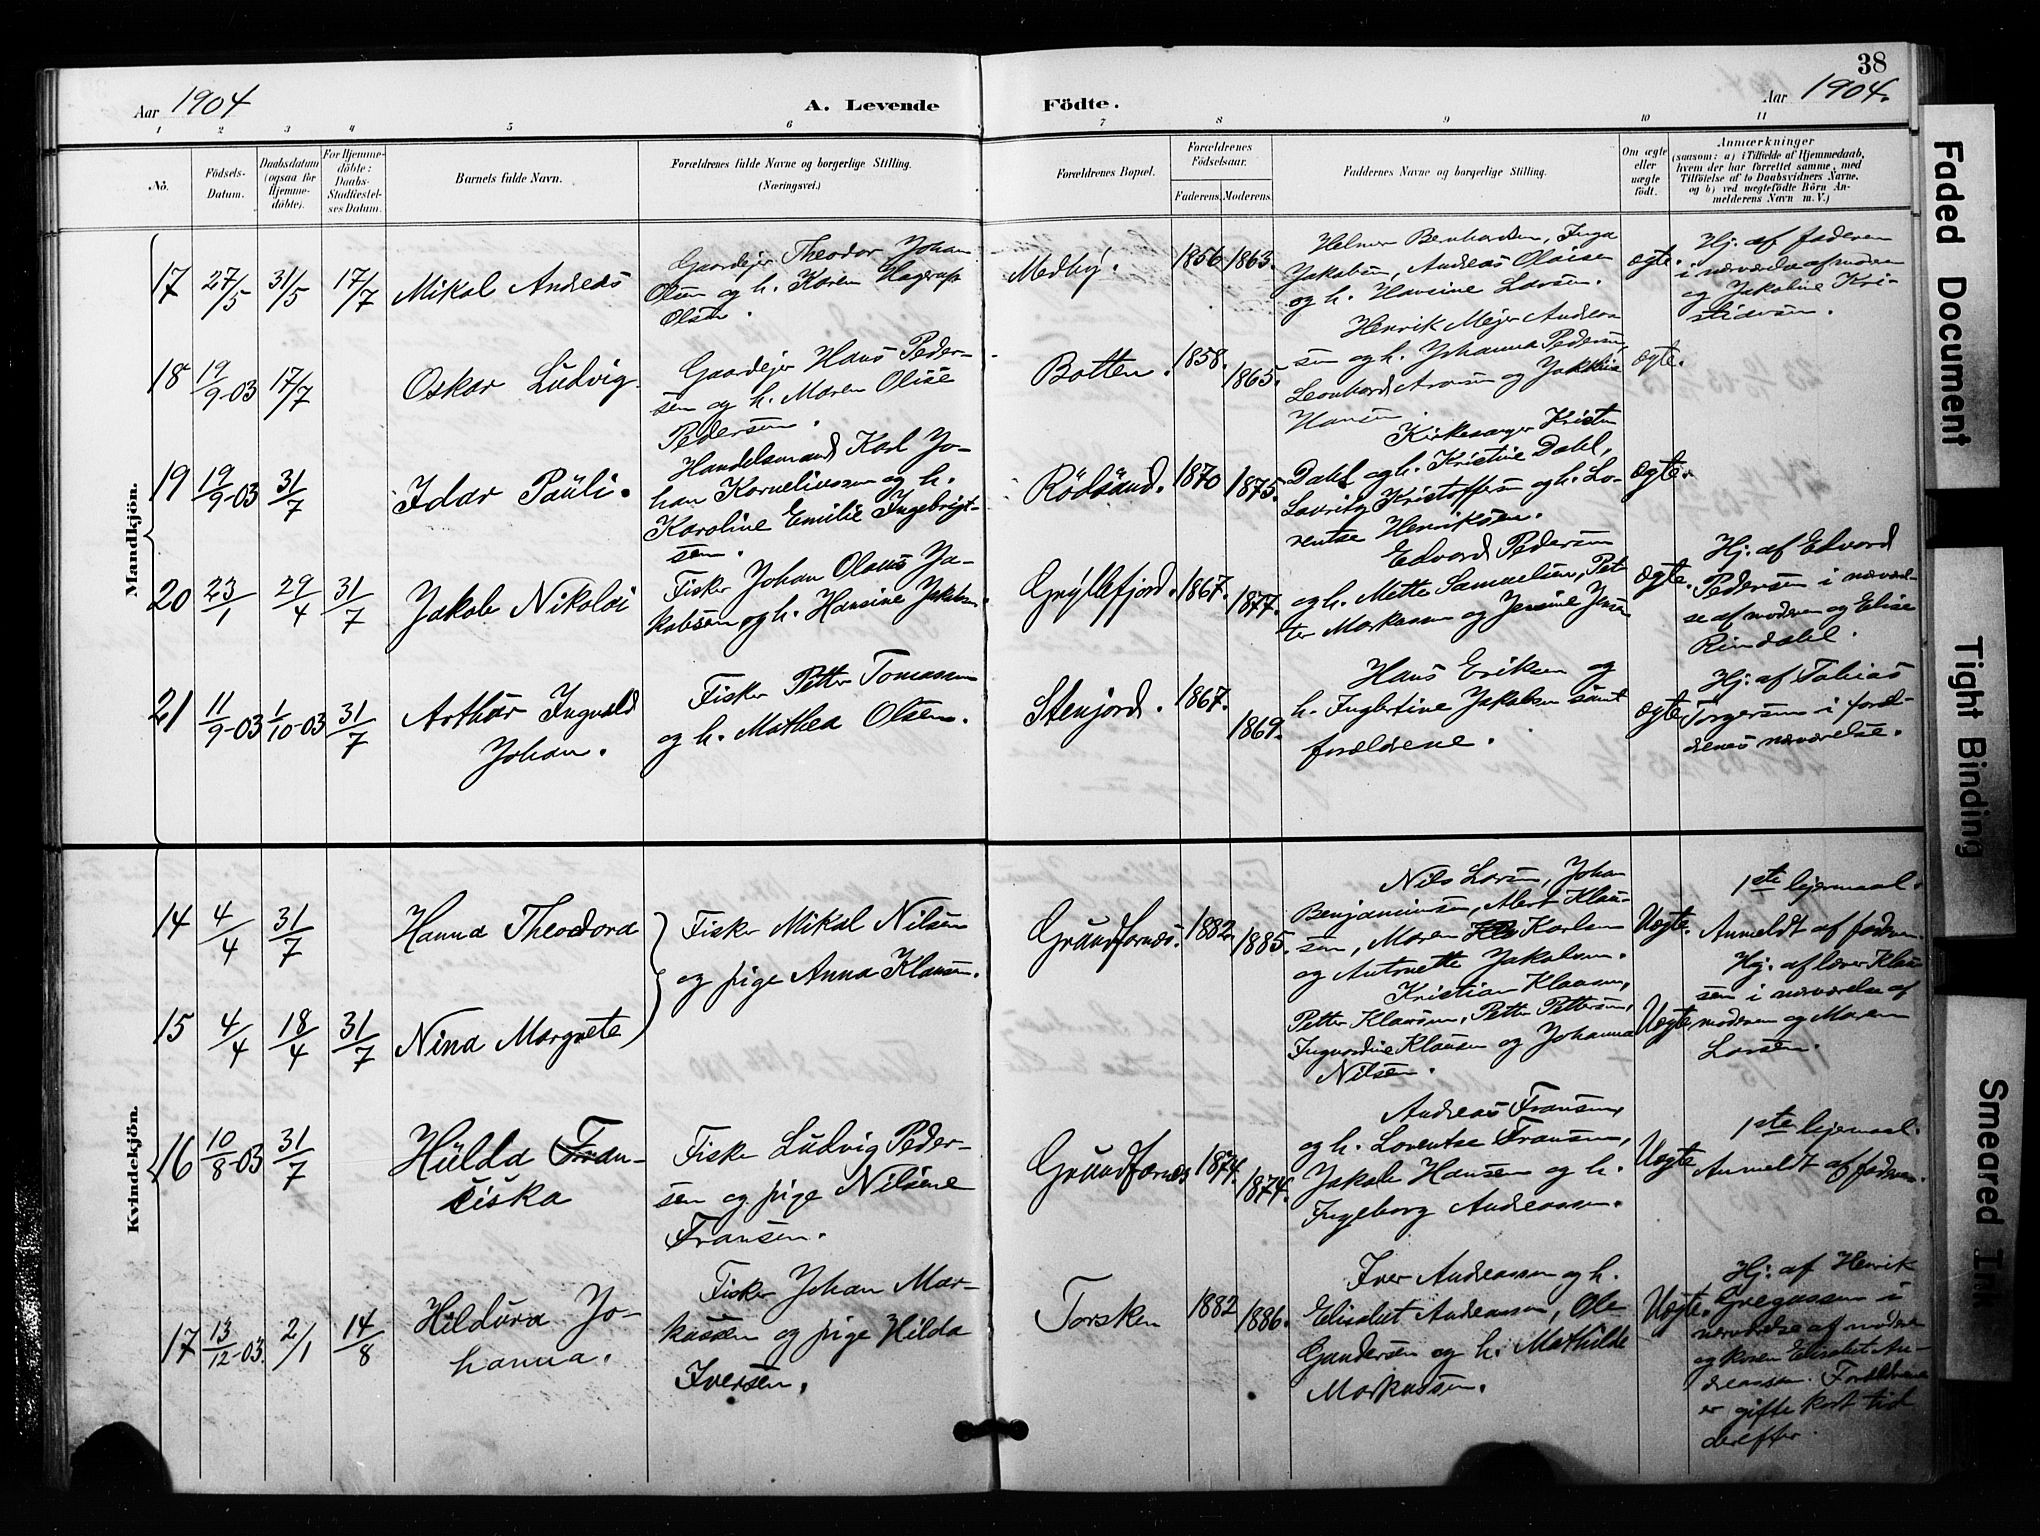 38
Aar 1904
A. Levende Födte.
Aar 1904.
1 2 3 4 5 6 7 8 9 10 11
No.
Födsels-
Datum.
Daabsdatum
(ogsaa for
Hjemme-
döbte).
For Hjemme-
döbte:
Daabs-
Stadfæstel-
ses Datum.
Barnets fulde Navn.
Forældrenes fulde Navne og borgerlige Stilling.
(Næringsvei.)
Forældrenes Bopæl.
Forældrenes
Födselsaar.
Faderens. Moderens.
Faddernes Navne og borgerlige Stilling.
Om ægte
eller
uægte
födt.
Anmærkninger
(saasom: a) i Tilfælde af Hjemmedaab,
hvem der har forrettet samme, med
Tilföielse af to Daabsvidners Navne,
og b) ved uægtefödte Börn An-
melderens Navn m. V.)
Mandkjön.
17 27/5 31/5 17/7 Mikal Andreas
Gaardejer Theodor Johan
Olsen og h. Karen Hagerup
Olsen.
Medby. 1856 1863.
Helmer Bernhardsen, Inga
Jakobsen, Andreas Olaisen
og h. Hansine Larsen.
ægte.
Hj. af faderen
i nærværelse af moren
og Jakobine Kri-
stiansen.
18 19/9-03 17/7 Oskar Ludvig
Gaardejer Hans Peder-
sen og h. Maren Olise
Pedersen.
Botten. 1858. 1865.
Henrik Mejer Andreas-
sen og h. Johanna Pedersen,
Leonhard Aronsen og
Hansen
ægte.
19 19/9-03 31/7 Idar Pauli.
Handelsmand Karl Jo-
han Korneliussen og h.
Karoline Emilie Ingebrigt-
sen.
Rödsand. 1870 1875.
Kirkesanger Kristen
Dahl og h. Kristine Dahl,
Lauritz Kristoffersen og h. Lo-
rentse Henriksen.
ægte.
20 23/1 29/4 31/7 Jakob Nikolai
Fisker Johan Olaus Ja-
kobsen og h. Hansine Jakobsen.
Gryllefjord. 1867. 1877.
Edvard Pedersen
og h. Mette Samuelsen, Pet-
ter Markussen og Jensine Jensen
ægte.
Hj. af Edvard
Pedersen i nærværel-
se af moderen og Elise
Rindahl.
21 11/9-03 1/10-03 31/7 Arthur Ingvald
Johan.
Fisker Petter Tomassen
og h. Mathea Olsen.
Stenjord. 1867. 1869.
Hans Eriksen og
h. Ingbertine Jakobsen samt
forældrene.
ægte
Hj. af Tobias
Torgersen i foræl-
drenes nærværelse.
Kvindekjön.
14 4/4 31/7 Hanna Theodora
Fisker Mikal Nilsen
og pige Anna Klausen.
Grundfarnes. 1882. 1885.
Nils Larsen, Johan
Benjaminsen, Alert Klau-
sen, Maren Karlsen
og Antonette Jakobsen.
Uægte.
1ste lejermaal.
Anmeldt af faderen.
15 4/4 18/4 31/7 Nina Margrete
Kristian Klausen,
Petter Klausen, Petter Pettersen,
Ingvardine Klausen og Johanna
Nilsen.
Uægte
Hj. af lærer Klau-
sen i nærværelse af
moderen og Maren
Larsen.
16 10/8-03 31/7 Hulda Fran-
siska
Fisker Ludvig Peder-
sen og pige Nilsine
Fransen.
Grundfarnes 1874. 1874.
Andreas Fransen,
og h. Lorentse Fransen,
Jakob Hansen og h.
Ingeborg Andreassen.
Uægte
1ste lejermaal.
Anmeldt af faderen.
17 13/12-03. 2/1 14/8 Hildura Jo-
hanna.
Fisker Johan Mar-
kussen og pige Hilda
Iversen.
Torsken 1882 1886.
Iver Andreassen og h.
Elisabet Andreassen, Ole
Gundersen og h. Mathilde
Markussen.
Uægte.
Hj. af Henrik
Gregussen i
nærværelse af moderen
og konen Elisabet An-
dreassen. Forældrene
er gifte kort tid
derefter.
Faded Document
Tight Binding
Smeared Ink